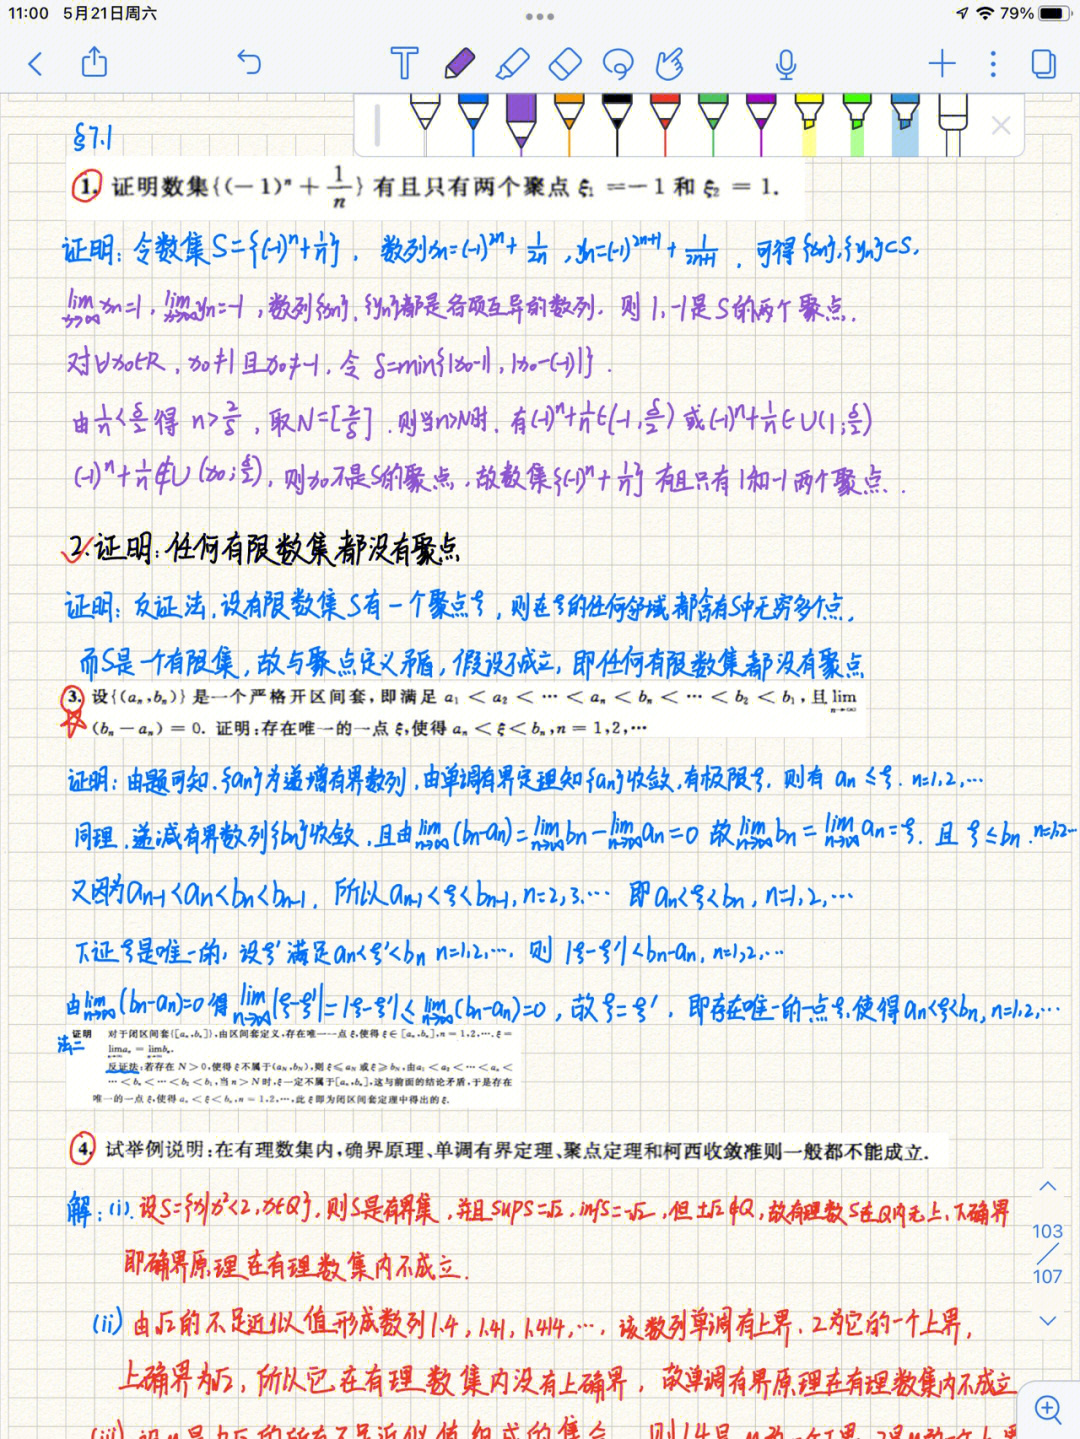 11:00 5月21日周六
79%
§7.1
1. 证明数集{(−1)ⁿ + 1/n} 有且只有两个聚点 ξ₁ = −1 和 ξ₂ = 1.
证明: 令数集S={(-1)ⁿ+1/n}, 数列xn=(-1)²ⁿ+1/2n, yn=(-1)²ⁿ⁺¹+1/2n+1, 可得{xn},{yn}⊂S,
lim n→∞ xn=1, lim n→∞ yn=-1, 数列{xn},{yn}都是各项互异的数列. 则1,-1是S的两个聚点.
对∀x0∈R, x0≠1且x0≠-1, 令 δ=min{|x0-1|, |x0-(-1)|}.
由1/n<δ/2得 n>2/δ, 取N=[2/δ]. 则当n>N时, 有(-1)ⁿ+1/n∈(-1,δ/2) 或(-1)ⁿ+1/n∈U(1;δ/2)
(-1)ⁿ+1/n∉U(x0;δ/2), 则x0不是S的聚点, 故数集{(-1)ⁿ+1/n} 有且只有1和-1两个聚点.
2. 证明: 任何有限数集都没有聚点
证明: 反证法, 设有限数集S有一个聚点ξ, 则在ξ的任何邻域都含有S中无穷多个点,
而S是一个有限集, 故与聚点定义矛盾, 假设不成立, 即任何有限数集都没有聚点
3. 设{(aₙ,bₙ)} 是一个严格开区间套, 即满足 a₁ < a₂ < ⋯ < aₙ < bₙ < ⋯ < b₂ < b₁, 且 lim n→∞
(bₙ − aₙ) = 0. 证明: 存在唯一的一点 ξ, 使得 aₙ < ξ < bₙ, n = 1,2,⋯
证明: 由题可知, {an}为递增有界数列, 由单调有界定理知{an}收敛, 有极限ξ, 则有 an≤ξ. n=1,2,⋯
同理, 递减有界数列{bn}收敛, 且由lim n→∞ (bn-an)=lim n→∞ bn-lim n→∞ an=0 故lim n→∞ bn=lim n→∞ an=ξ. 且 ξ≤bn. n=1,2⋯
又因为an-1<an<bn<bn-1, 所以an-1<ξ<bn-1, n=2,3,⋯ 即an<ξ<bn, n=1,2,⋯
下证ξ是唯一的, 设ξ'满足an<ξ'<bn n=1,2,⋯, 则 |ξ-ξ'|<bn-an, n=1,2,⋯
由lim n→∞ (bn-an)=0得 lim n→∞ |ξ-ξ'|=|ξ-ξ'|≤lim n→∞ (bn-an)=0, 故ξ=ξ', 即存在唯一的一点ξ, 使得an<ξ<bn, n=1,2,⋯
证明 对于闭区间套{[aₙ,bₙ]}, 由区间套定义, 存在唯一一点 ξ, 使得 ξ ∈ [aₙ,bₙ], n = 1,2,⋯, ξ =
法二 lim n→∞ aₙ = lim n→∞ bₙ.
反证法: 若存在 N > 0, 使得 ξ 不属于(a_N,b_N), 则 ξ ≤ a_N 或 ξ ≥ b_N, 由a₁ < a₂ < ⋯ < aₙ <
⋯ < bₙ < ⋯ < b₂ < b₁, 当 n > N 时, ξ 一定不属于[aₙ,bₙ], 这与前面的结论矛盾, 于是存在
唯一的一点 ξ, 使得 aₙ < ξ < bₙ, n = 1,2,⋯, 此 ξ 即为闭区间套定理中得出的 ξ.
4. 试举例说明: 在有理数集内, 确界原理、单调有界定理、聚点定理和柯西收敛准则一般都不能成立.
解: (i). 设S={x|x²<2, x∈Q}, 则S是有界集, 并且supS=√2, infS=-√2, 但±√2∉Q, 故有理数S在Q内无上、下确界
即确界原理在有理数集内不成立.
103
107
(ii) 由√2的不足近似值形成数列1.4, 1.41, 1.414, ⋯, 该数列单调有上界, 2为它的一个上界,
上确界为√2, 所以它在有理数集内没有上确界, 故单调有界原理在有理数集内不成立